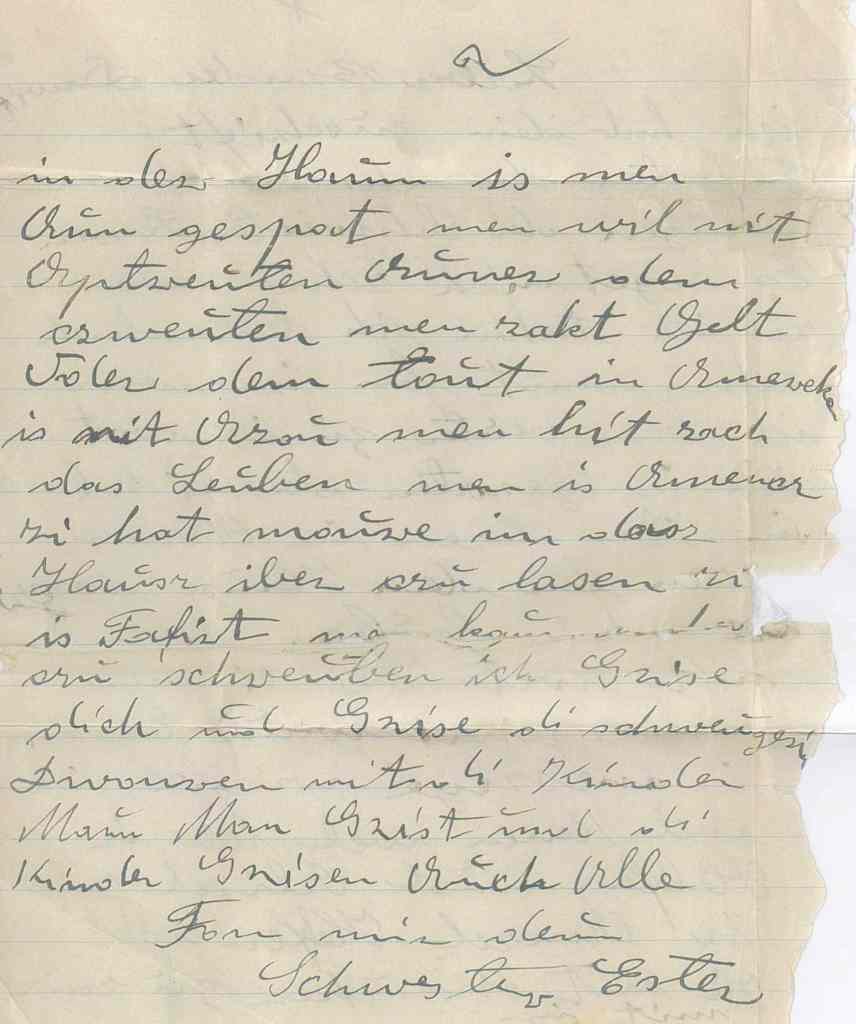 2
in der Haum is men
Aun gespat men wil nit
Optzeuten Auner dem
czweuten men zakt Gelt
Oder dem tout in Amereka
is nit Azou men hit zach
das Leuben men is Amener
zi hat mouze im dasz
Hausz iber czu lasen zi
is Fafirt
czu schreuben ich Grise
dich und Grise di schweugerin
Dwouren mit di Kinder
Maun Man Grist und di
Kinder Grisen Auch Alle
Fon mir deun
Schwester Ester